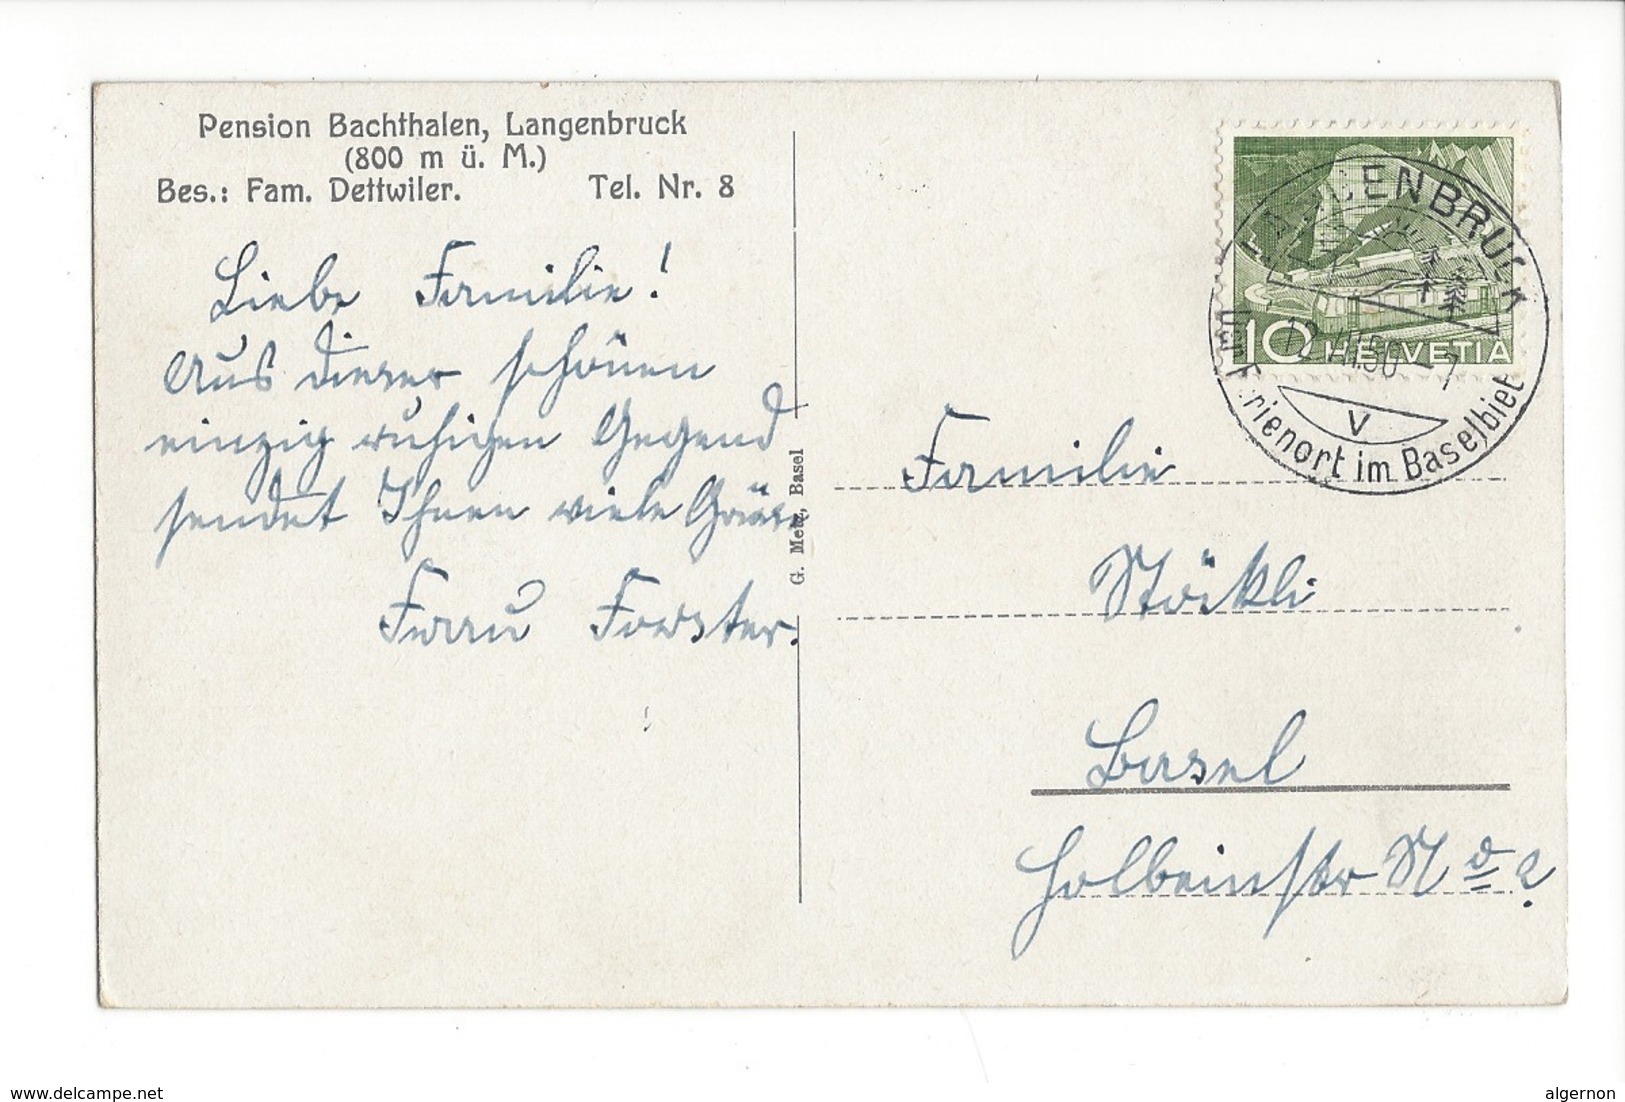 Pension Bachthalen, Langenbruck
(800 m ü. M.)
Bes.: Fam. Dettwiler. Tel. Nr. 8
Liebe Familie!
Aus dieser schönen
einzig ruhigen Gegend
sendet Ihnen viele Grüsse
Frau Forster.
G. Metz, Basel
LANGENBRUCK
12. VII.50-7
V
Ferienort im Baselbiet
10 HELVETIA
Familie
Stöckli
Basel
Holbeinstr No
delcampe.net
algernon